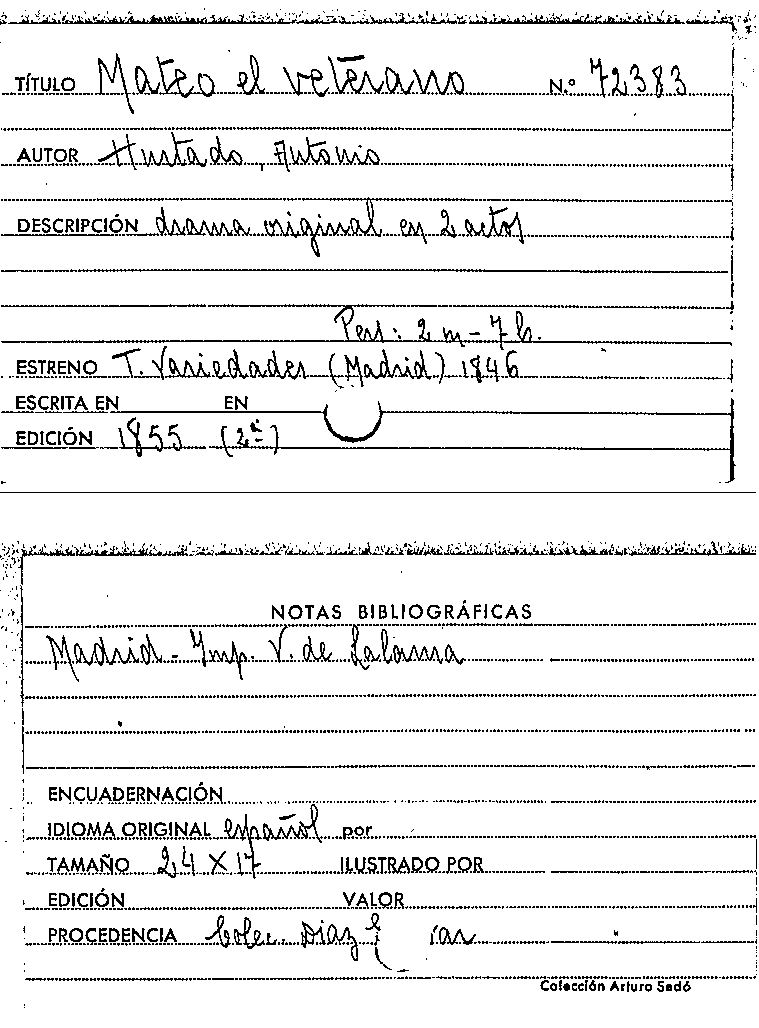 TÍTULO Mateo el veterano N.º 72383
AUTOR Hurtado, Antonio
DESCRIPCIÓN drama original en 2 actos
Pers: 2 m - 7 h.
ESTRENO T. Variedades (Madrid) 1846
ESCRITA EN EN
EDICIÓN 1855 (2ª)
NOTAS BIBLIOGRÁFICAS
Madrid - Imp. V. de Lalama
ENCUADERNACIÓN
IDIOMA ORIGINAL español por
TAMAÑO 24 X 17 ILUSTRADO POR
EDICIÓN VALOR
PROCEDENCIA Colec. Díaz
Colección Arturo Sedó